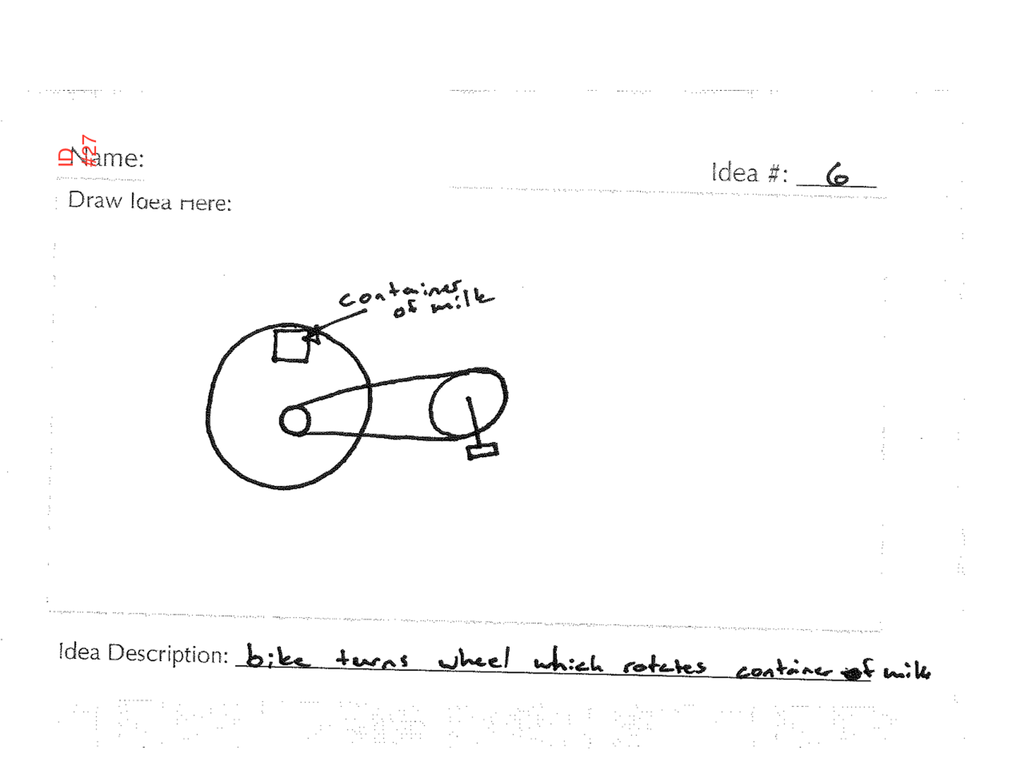 ID #27
Name:
Idea #: 6
Draw Idea Here:
container
of milk
Idea Description: bike turns wheel which rotates container of milk